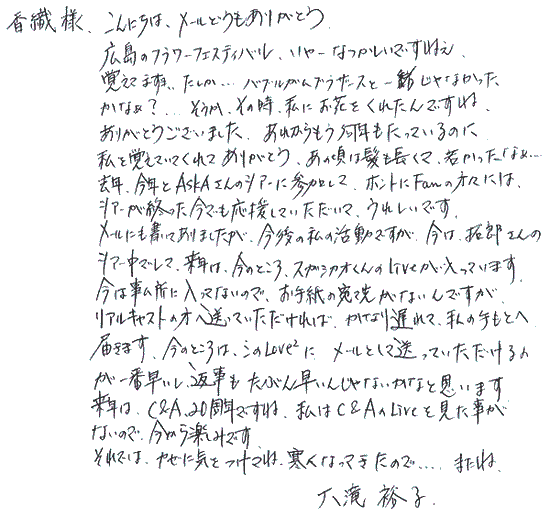 香織様、こんにちは、メールどうもありがとう
広島のフラワーフェスティバル、いやーなつかしいですねぇ
覚えてますよ、たしか… バブルガムブラザーズと一緒じゃなかった
かなぁ？ … そうか、その時、私にお花をくれたんですね、
ありがとうございました、あれからもう何年もたっているのに、
私を覚えていてくれてありがとう、あの頃は髪も長くて、若かったなぁ…
去年、今年とASKAさんのツアーに参加して、ホントにFanの方々には、
ツアーが終った今でも応援していただいて、うれしいです。
メールにも書いてありましたが、今後の私の活動ですが、今は、拓郎さんの
ツアー中でして、来年は、今のところ、スガシカオくんのLiveが入っています
今は事ム所に入ってないので、お手紙の宛て先がないんですが
リアルキャストの方へ送っていただければ、かなり遅れて、私の手もとへ
届きます、今のところは、このLove²に メールとして送っていただけるの
が一番早いし、返事もたぶん早いんじゃないかなと思います
来年は、C&A、20周年ですね、私はC&AのLiveを見た事が
ないので、今から楽しみです
それでは、かぜに気をつけてね、寒くなってきたので…. またね、
大滝裕子